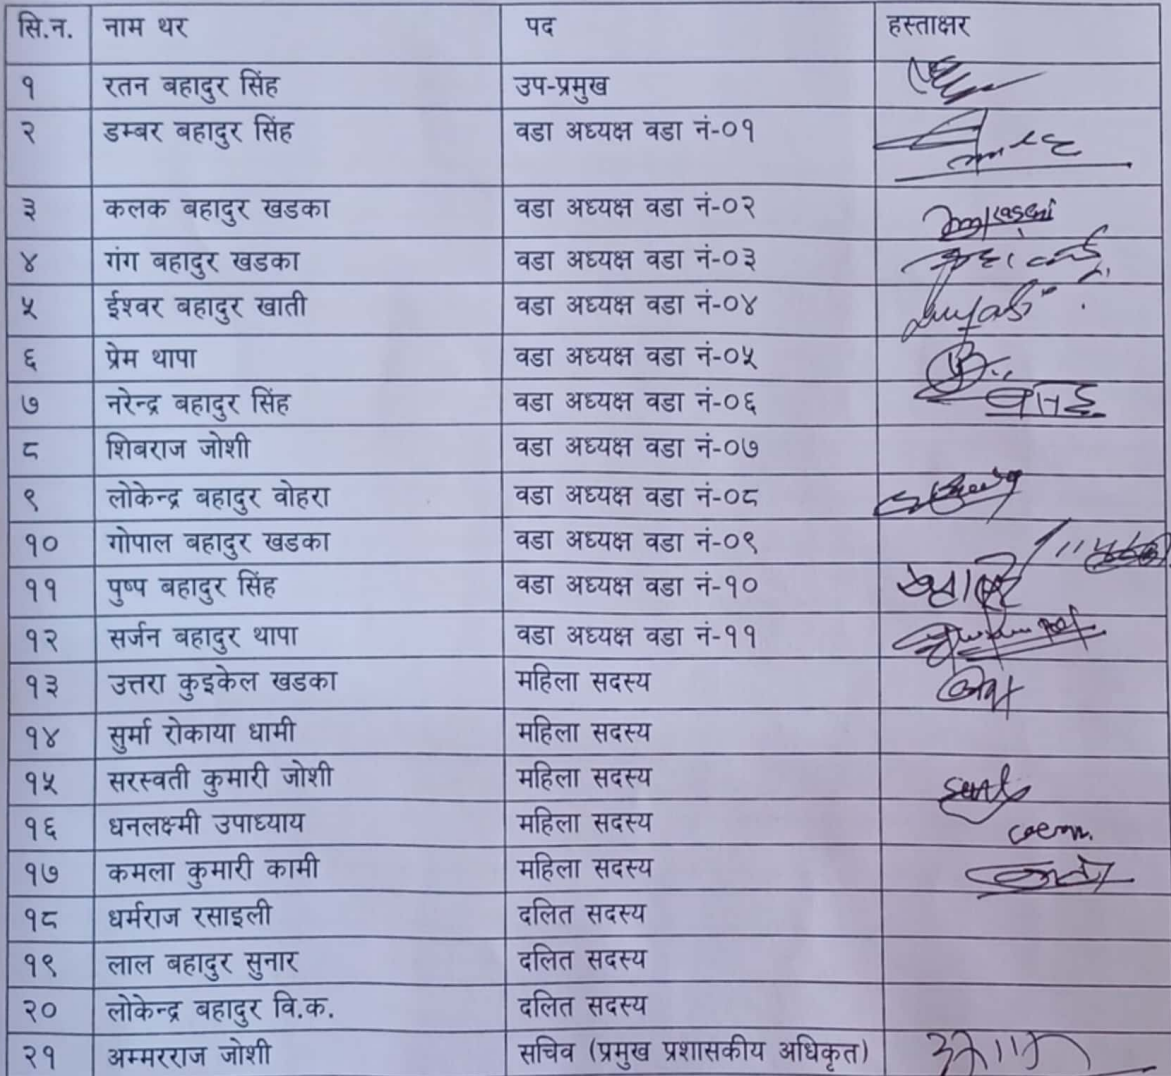 सि.न. नाम थर पद हस्ताक्षर
१ रतन बहादुर सिंह उप-प्रमुख
२ डम्बर बहादुर सिंह वडा अध्यक्ष वडा नं-०१
३ कलक बहादुर खडका वडा अध्यक्ष वडा नं-०२
४ गंग बहादुर खडका वडा अध्यक्ष वडा नं-०३
५ ईश्वर बहादुर खाती वडा अध्यक्ष वडा नं-०४
६ प्रेम थापा वडा अध्यक्ष वडा नं-०५
७ नरेन्द्र बहादुर सिंह वडा अध्यक्ष वडा नं-०६
८ शिबराज जोशी वडा अध्यक्ष वडा नं-०७
९ लोकेन्द्र बहादुर वोहरा वडा अध्यक्ष वडा नं-०८
१० गोपाल बहादुर खडका वडा अध्यक्ष वडा नं-०९
११ पुष्प बहादुर सिंह वडा अध्यक्ष वडा नं-१०
१२ सर्जन बहादुर थापा वडा अध्यक्ष वडा नं-११
१३ उत्तरा कुइकेल खडका महिला सदस्य
१४ सुर्मा रोकाया धामी महिला सदस्य
१५ सरस्वती कुमारी जोशी महिला सदस्य
१६ धनलक्ष्मी उपाध्याय महिला सदस्य
१७ कमला कुमारी कामी महिला सदस्य
१८ धर्मराज रसाइली दलित सदस्य
१९ लाल बहादुर सुनार दलित सदस्य
२० लोकेन्द्र बहादुर वि.क. दलित सदस्य
२१ अम्मरराज जोशी सचिव (प्रमुख प्रशासकीय अधिकृत)